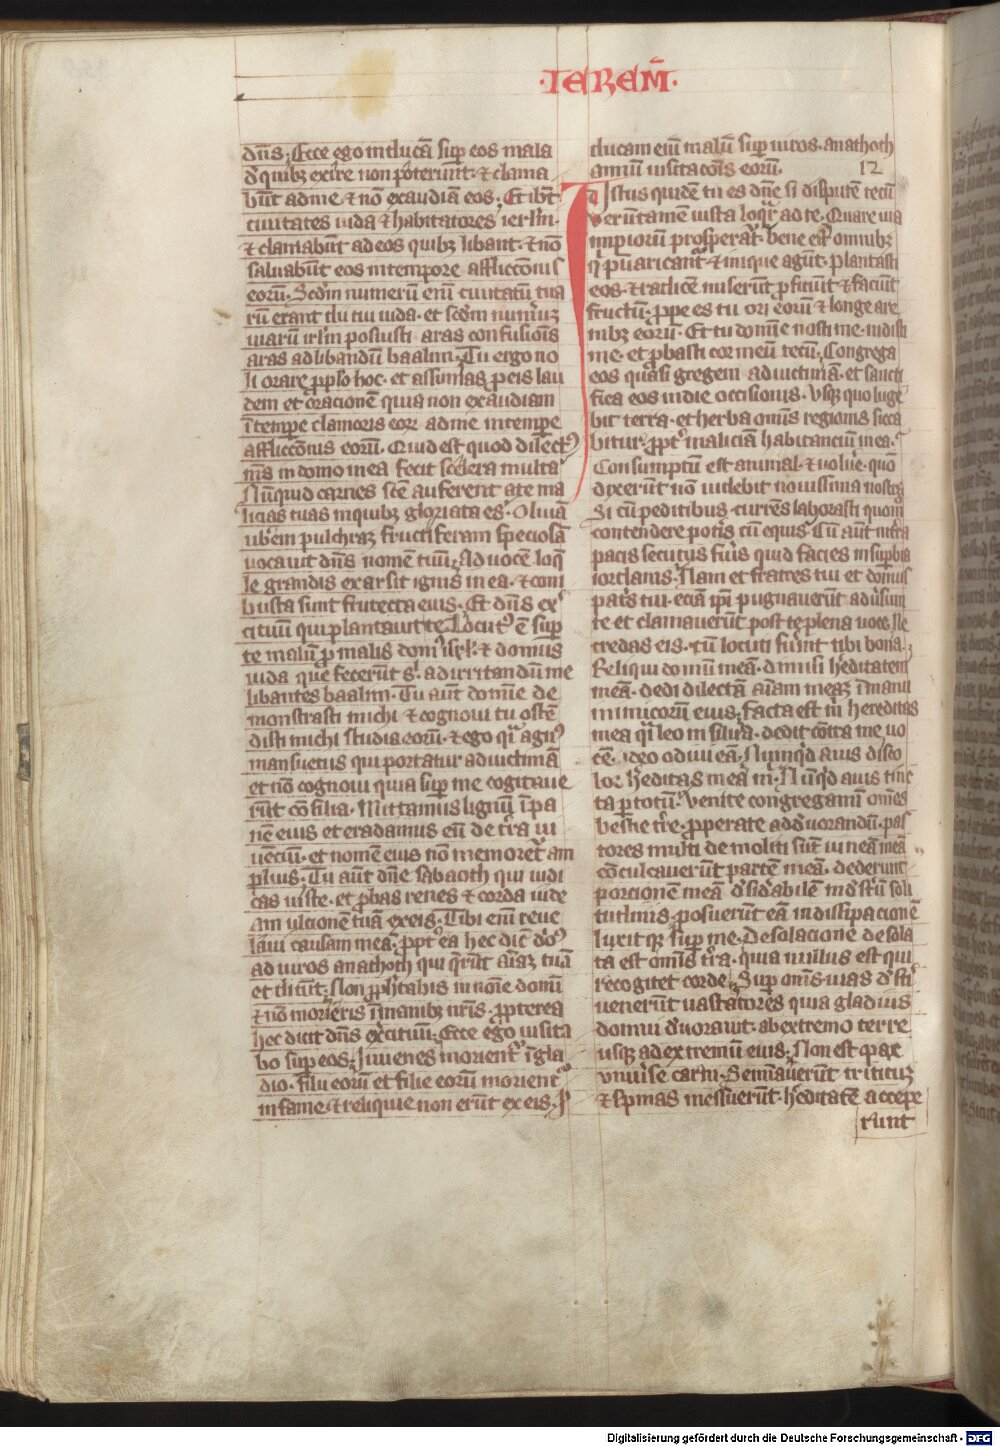 ·IEREM̄·
dn̄s. Ecce ego inducā sup̄ eos mala
d̓ quibꝫ exire non poterunt. ⁊ clama
būt ad me. ⁊ nō exaudiā eos. Et ibūt
ciuitates iuda ⁊ habitatores ierl'm.
⁊ clamabūt ad eos quibꝫ libant. ⁊ nō
saluabūt eos in tempore afflicconis
eorū. Scd̄m numerū enī ciuitatū tua
rū erant dii tui iuda. et scd̄m num̄ꝫ
uiarū irl'm posuisti aras confusiois
aras ad libandū baalim. Tu ergo no
li orare p̱ pp̄lo hoc. et assumas p̱ eis lau
dem et oracionē quia non exaudiam
ī tempe clamoris eoꝝ ad me in tempe
afflicconis eorū. Quid est quod dilect⁹
m̄s in domo mea fecit scelera multa
Nūnquid carnes sc̄e auferent a te ma
licias tuas in quibꝫ gloriata es. Oliuā
ub̓em pulchraꝫ fructiferam speciosā
uocauit dn̄s nomē tuū. Ad uocē loq̄
le grandis exarsit ignis in ea. ⁊ com
busta sunt frutecta eius. Et dn̄s ex̓
cituū qui plantauit te. Locut⁹ ē sup̄
te malū p̱ malis dom̓ isrl'. ⁊ domus
iuda que fecerūt s̓. ad irritandū me
libantes baalim. Tu aūt domīe de
monstrasti michi ⁊ cognoui tu ostē
disti michi studia eorū. ⁊ ego q̄ agn⁹
mansuetus qui portatur ad uictimā
et nō cognoui quia sup̄ me cogitaue
rūt cōsilia. Mittamus lignū ī pa
nē eius et eradamus eū de t̓ra ui
uēciū. et nomē eius nō memoret̄ am
plius. Tu aūt dn̄e sabaoth qui iudi
cas iuste. et p̱bas renes ⁊ corda uide
am ulcionē tuā ex eis. Tibi enī reue
laui causam meā. ppt̓ea hec dic̄ dn̄s
ad uiros anathoth qui q̄rūt aīaꝫ tuā
et dicūt. Non p̱ph̓tabis in noīe domī
⁊ nō morieris ī manibꝫ n̄ris. p̱pterea
hec dicit dn̄s ex̓cituū. Ecce ego uisita
bo sup̄ eos. Iuuenes morient̄ ī gla
dio. filii eorū et filie eorū morient̄
in fame. ⁊ reliquie non erūt ex eis. I
ducam enī malū sup̄ uiros. anathoth
annū uisitacōis eorū.
12
Iustus quidē tu es dn̄e si disputē tecū
uerūtamē iusta loq̄r ad te. Quare uia
impiorū prosperat̄. bene est omnibꝫ
q̓ p̄uaricant̄. ⁊ inique agūt. plantasti
eos. ⁊ radicē miserūt p̱ficiūt ⁊ faciūt
fructū. p̱pe es tu ori eorū ⁊ longe a re
nibꝫ eorū. Et tu domīe nosti me. uidisti
me. et p̱basti cor meū tecū. Congrega
eos quasi gregem ad uictimā. et sancti
fica eos in die occisionis. Vsq̄ quo luge
bit terra. et herba omīs regionis sicca
bitur. p̱pt̓ maliciā habitanciū in ea.
Consumptū est animal. ⁊ uolūc̄. quō
dixerūt nō uidebit nouissima nostra
Si cū peditibus currēs laborasti quom̄
contendere potis cū equis. Cū aūt in t̓ra
pacis securus fu̓is quid facies in sup̄bia
iordanis. Nam et fratres tui et domus
pat̓s tui. eciā ip̄i pugnauerūt adu̓sum
te et clamauerūt post te plena uoce. Ne
credas eis. cū locuti fu̓int tibi bona.
Reliqui domū meā. dimisi h̓editatem
meā. dedi dilectā aīam meaꝫ ī manu
inimicorū eius. Facta est m̓ hereditas
mea q̄ leo in silua. dedit cōtra me uo
cē. ideo odiui eā. Nunqd̓ auis disco
lor h̓editas mea m̓. Nūqd̓ auis tinc
ta p̱ totū. Venite congregamī omēs
bestie t̓re. p̱perate ad d̓uorandū. pas
tores multi demoliti sūt uineā meā
cōculcauerūt partē meā. dederunt
porcionē meā d̓sid̓abilē in d̓s̓tū soli
tudinis. posuerūt eā in dissipacionē
luxitqꝫ sup̄ me. Desolacione desola
ta est omīs t̓ra. quia nullus est qui
recogitet corde. Sup̄ omīs uias d̓s̓ti
uenerūt uastatores quia gladius
domini d̓uorauit. ab extremo terre
usqꝫ ad extremū eius. Non est pax
vniu̓se carni. Seminauerūt triticuꝫ
⁊ spinas messuerūt. h̓editatē accepe
runt
Digitalisierung gefördert durch die Deutsche Forschungsgemeinschaft - DFG